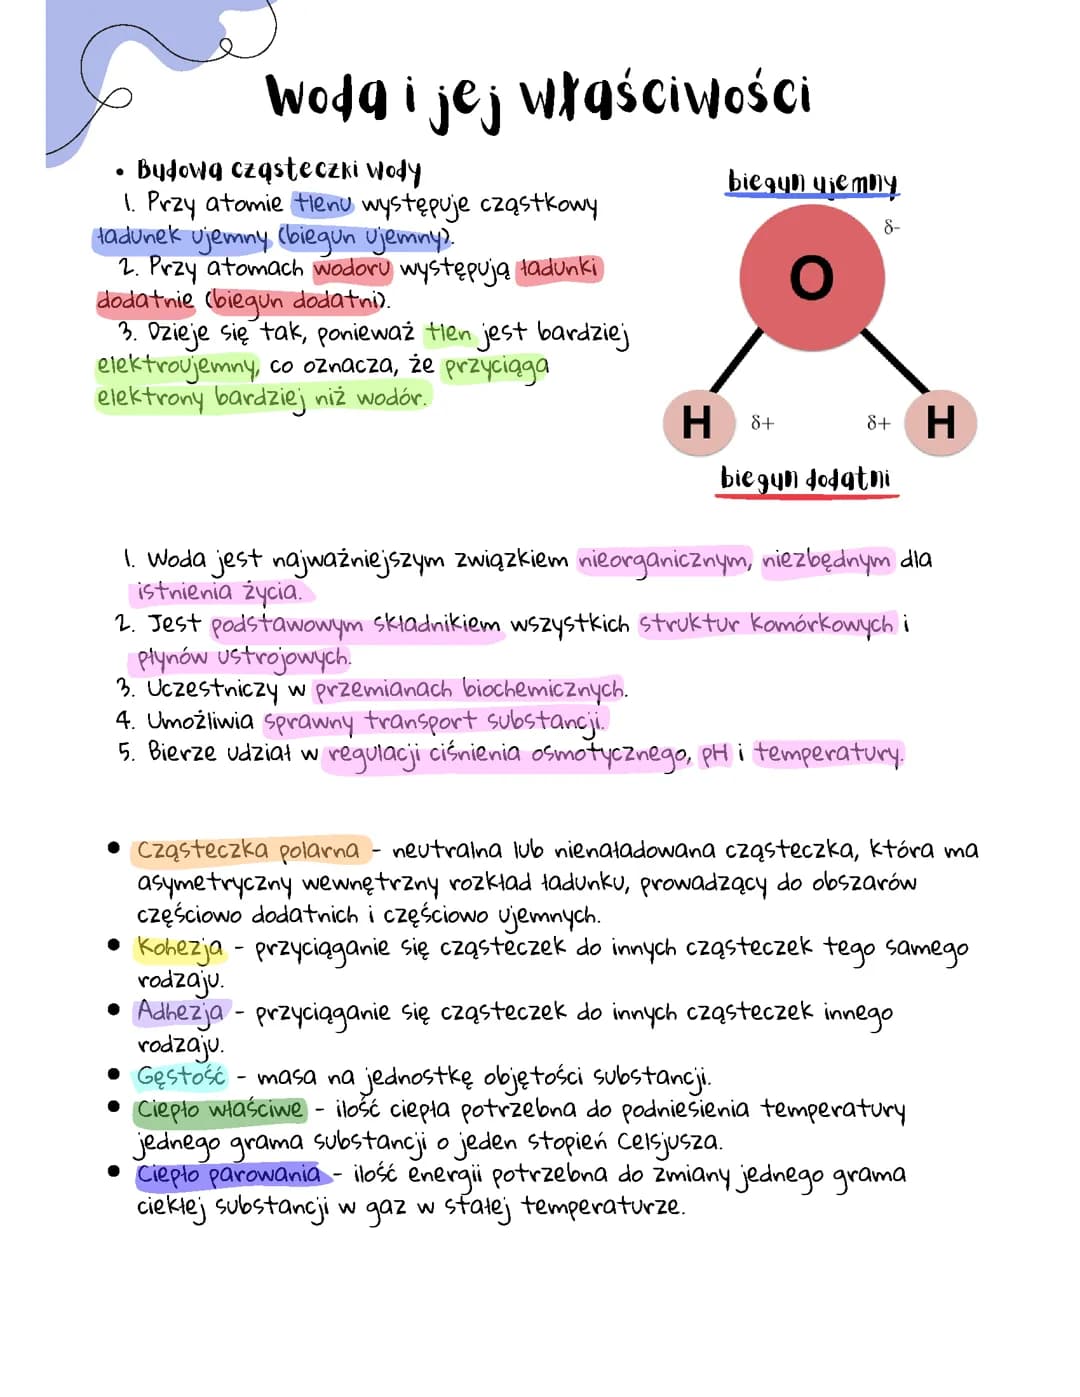 Woda i jej właściwości
• Budowa cząsteczki wody
1. Przy atomie tlenu występuje cząstkowy
ładunek ujemny (biegun ujemny).
2. Przy atomach wodoru występują ładunki
dodatnie (biegun dodatni).
3. Dzieje się tak, ponieważ tlen jest bardziej
elektroujemny, co oznacza, że przyciąga
elektrony bardziej niż wodór.
biegun ujemny
δ-
O
H δ+ δ+ H
biegun dodatni
1. Woda jest najważniejszym związkiem nieorganicznym, niezbędnym dla
istnienia życia.
2. Jest podstawowym składnikiem wszystkich struktur komórkowych i
płynów ustrojowych.
3. Uczestniczy w przemianach biochemicznych.
4. Umożliwia sprawny transport substancji.
5. Bierze udział w regulacji ciśnienia osmotycznego, pH i temperatury.
• Cząsteczka polarna - neutralna lub nienaładowana cząsteczka, która ma
asymetryczny wewnętrzny rozkład ładunku, prowadzący do obszarów
częściowo dodatnich i częściowo ujemnych.
• Kohezja - przyciąganie się cząsteczek do innych cząsteczek tego samego
rodzaju.
• Adhezja - przyciąganie się cząsteczek do innych cząsteczek innego
rodzaju.
• Gęstość - masa na jednostkę objętości substancji.
• Ciepło właściwe - ilość ciepła potrzebna do podniesienia temperatury
jednego grama substancji o jeden stopień Celsjusza.
• Ciepło parowania - ilość energii potrzebna do zmiany jednego grama
ciekłej substancji w gaz w stałej temperaturze.